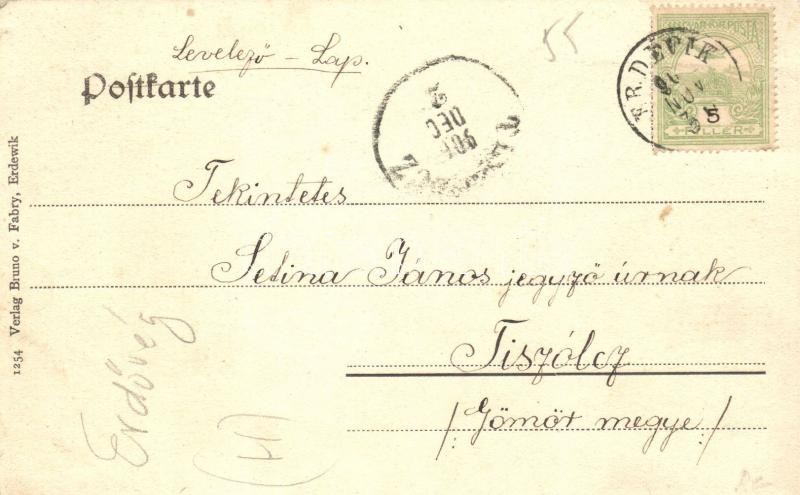 55
Levelező - Lap.
Postkarte
MAGYAR KIR. POSTA
5
FILLER
ERDEVIK
NOV
2
DEC
906
Tekintetes
Setina János jegyző úrnak
Tiszólcz
/: Gömör megye :/
Erdővég
1254 Verlag Bruno v. Fabry, Erdewik